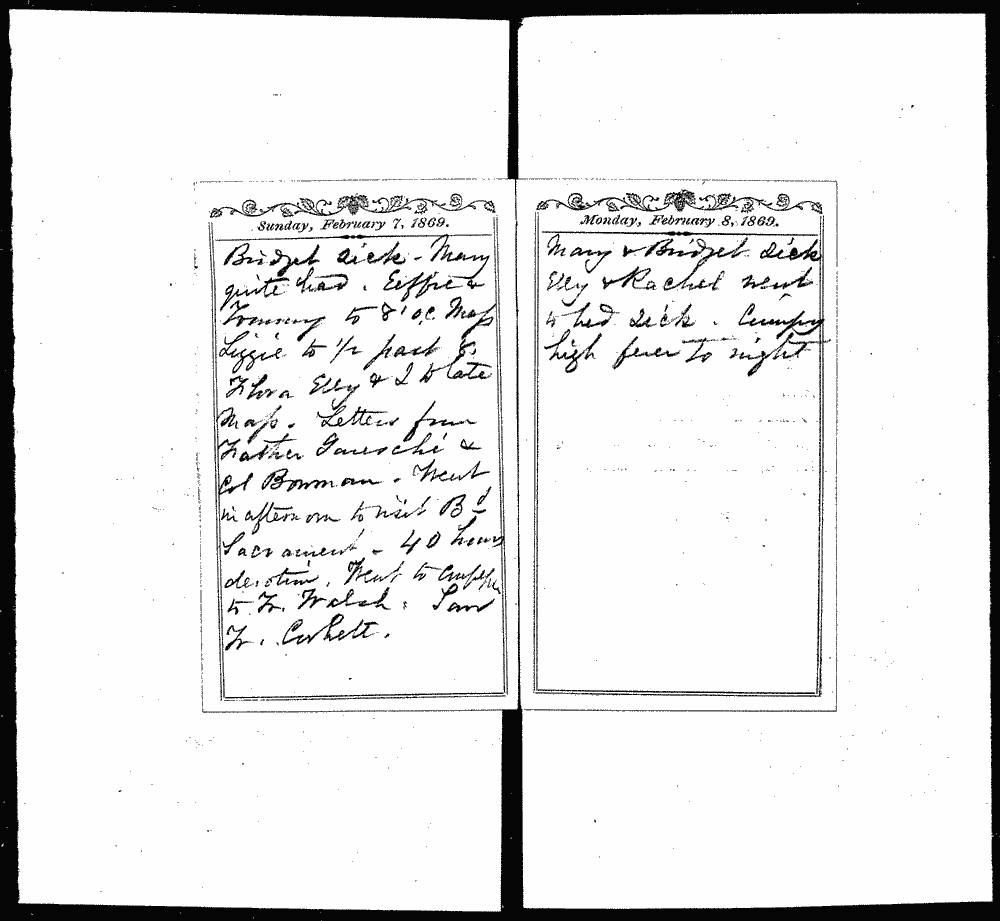 Sunday, February 7, 1869.
Bridget sick - Mary
quite bad. Effie &
Tommy to 8' o.c. Mass
Lizzie to 1/2 past 8.
Flora Elly & I to late
Mass. Letters from
Father Garesché &
Col Bowman. Went
in afternoon to visit Bd
Sacrament - 40 hours
devotion. Went to
to Fr. Walsh. Saw
Fr. Corbett.
Monday, February 8, 1869.
Mary & Bridget sick
Elly & Rachel went
to bed sick. Cumpy
high fever to night